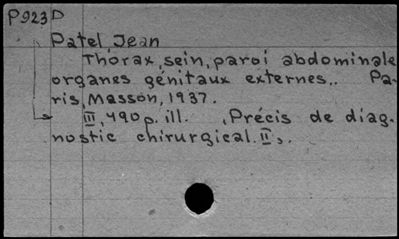 P923D
Patel, Jean
Thorax, sein, paroi abdominale
organes génitaux externes.. Pa-
ris, Masson, 1937.
III, 490 p. ill. , Précis de diag-
nostic chirurgical. II,.